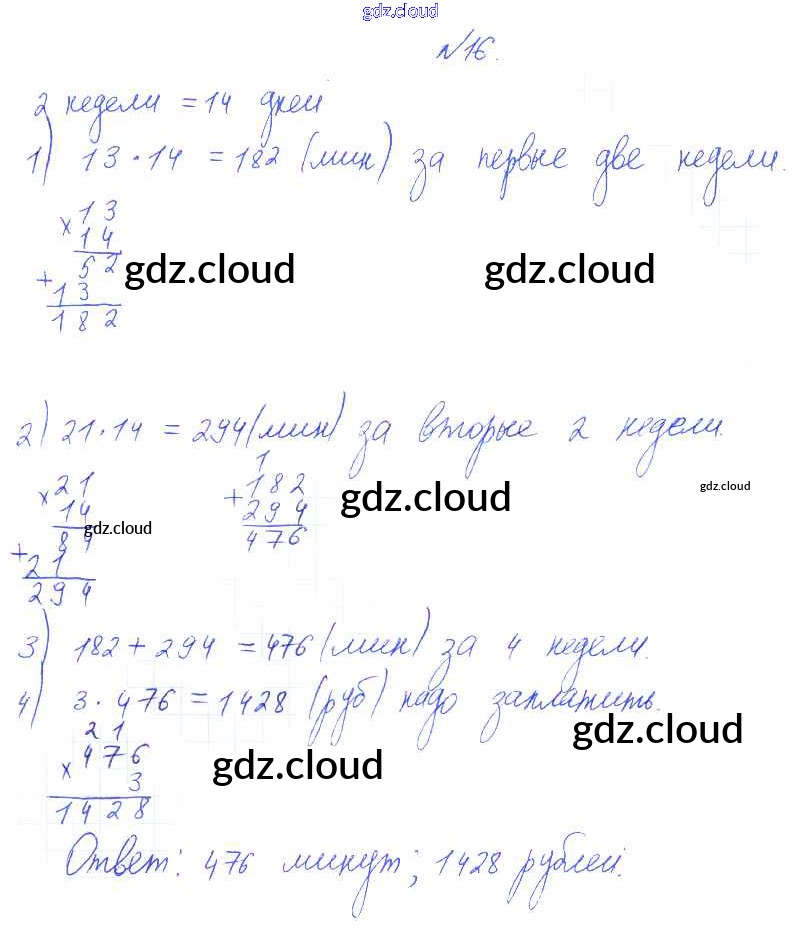 gdz.cloud
№16.
2 недели = 14 дней
1) 13 · 14 = 182 (мин) за первые две недели.
× 13
14
52
+ 13
182
gdz.cloud gdz.cloud
2) 21 · 14 = 294 (мин) за вторые 2 недели.
× 21
14
84
+ 21
294
1
+ 182
294
476
gdz.cloud gdz.cloud gdz.cloud
3) 182 + 294 = 476 (мин) за 4 недели.
4) 3 · 476 = 1428 (руб) надо заплатить.
21
× 476
3
1428
gdz.cloud gdz.cloud
Ответ: 476 минут; 1428 рублей.